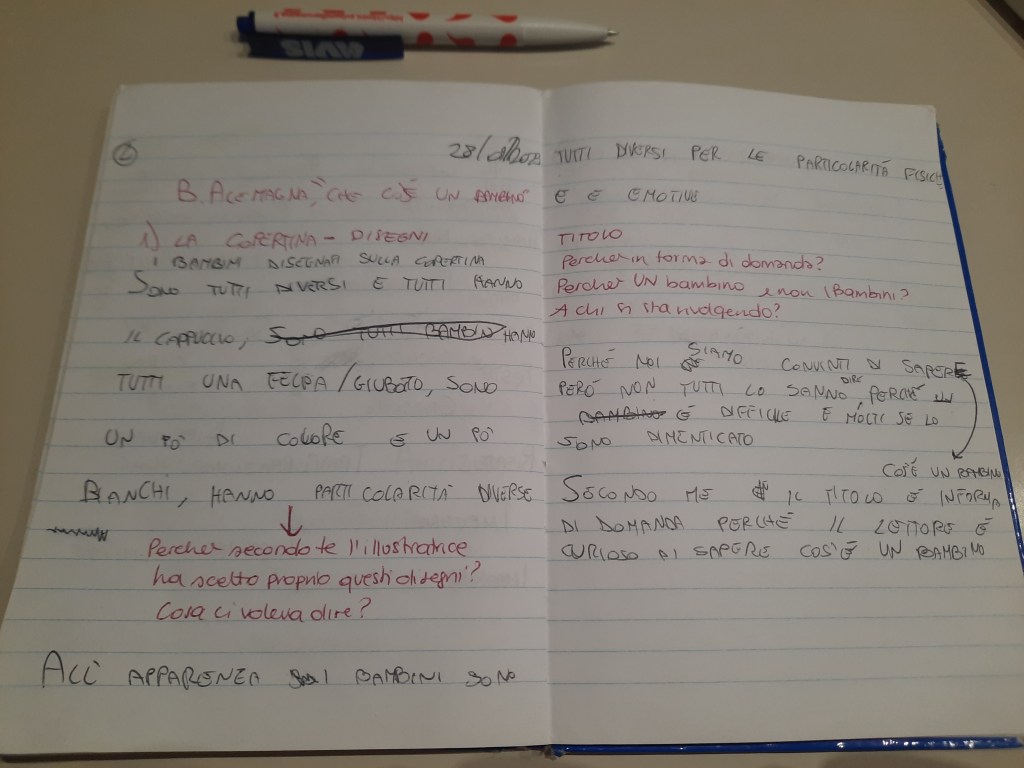 SIAN
②
B. ALEMAGNA, "CHE COS'È UN BAMBINO
1) LA COPERTINA - DISEGNI
I BAMBINI DISEGNATI SULLA COPERTINA
SONO TUTTI DIVERSI E TUTTI HANNO
IL CAPPUCCIO, SONO TUTTI BAMBINI HANNO
TUTTI UNA FELPA/GIUBOTO, SONO
UN PÒ DI COLORE E UN PÒ
BIANCHI, HANNO PARTICOLARITÀ DIVERSE
Perchè secondo te l'illustratrice
ha scelto proprio questi disegni?
Cosa ci voleva dire?
ALL' APPARENZA I BAMBINI SONO
TUTTI DIVERSI PER LE PARTICOLARITÀ FISICHE
E E EMOTIVE
TITOLO
Perchè in forma di domanda?
Perchè UN bambino e non I Bambini?
A chi si sta rivolgendo?
PERCHÉ NOI SIAMO CONVINTI DI SAPERE
PERÒ NON TUTTI LO SANNO DIRE, PERCHÉ UN
BAMBINO È DIFFICILE E MOLTI SE LO
SONO DIMENTICATO
COS'È UN BAMBINO
SECONDO ME IL TITOLO È INFORMA
DI DOMANDA PERCHÉ IL LETTORE È
CURIOSO DI SAPERE COS'È UN BAMBINO